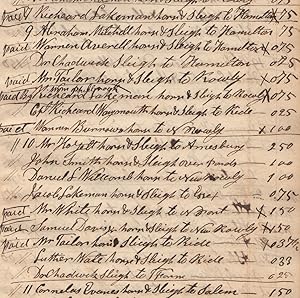 paid Richeard Lakeman horse & Sleigh to Hamilton X 75
9 Abraham Mitchell horse & Sleigh to Hamilton 75
paid Warren Averill horse & Sleigh to Hamilton X 075
Dr Chadwick Sleigh to Hamilton 025
paid Mr Tailor horse & Sleigh to Rowly X 075
paid By Richeard Lakeman horse & Sleigh to Rowly X 075
Cpt Richeard Waymouth horse & Sleigh to Ride 025
paid Warren Burnews horse to N Rowly X 100
11 10 Mr Hoyt horse & Sleigh to Amesbury 250
John Smith horse & Sleigh over 100
Daniel S Willcomb horse to New Rowly 100
Jacob Lakeman horse & Sleigh to Esex 075
paid Mr White horse & Sleigh to N Port X 150
paid Samuel horse & Sleigh to New Rowly X 150
paid Mr Tailor horse & Sleigh to Ride X 0 37½
Luther Wait horse & Sleigh to Ride 033
Dr Chadwick Sleigh to Farm 025
11 Cornelas horse & Sleigh to Salem 150